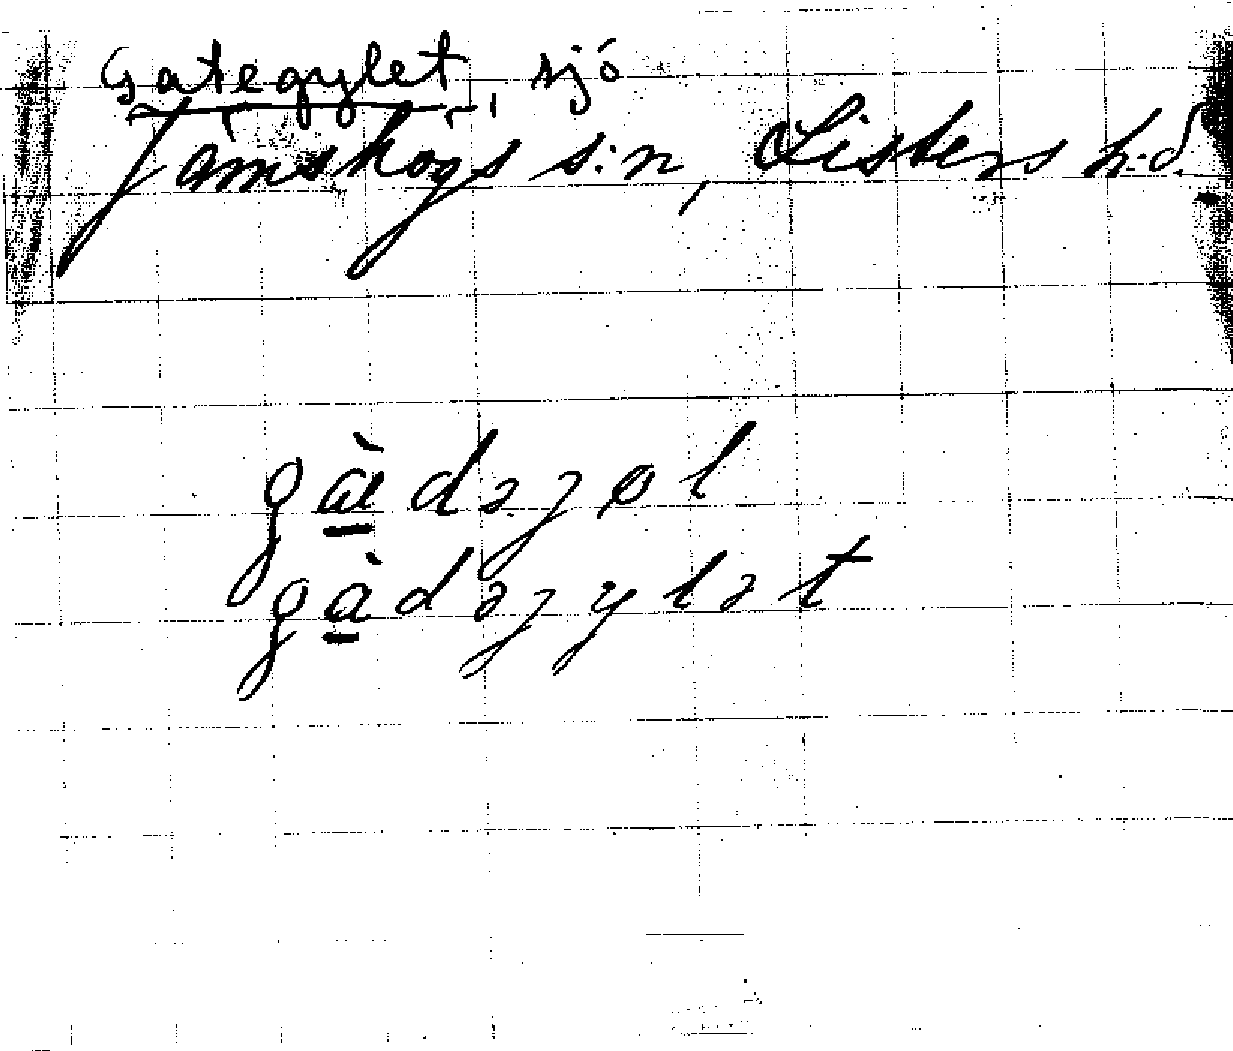 Gategylet, sjö
Jämshögs s:n, Listers h:d.
gæ̠̀dəʒøl
gà̠dəʒylət